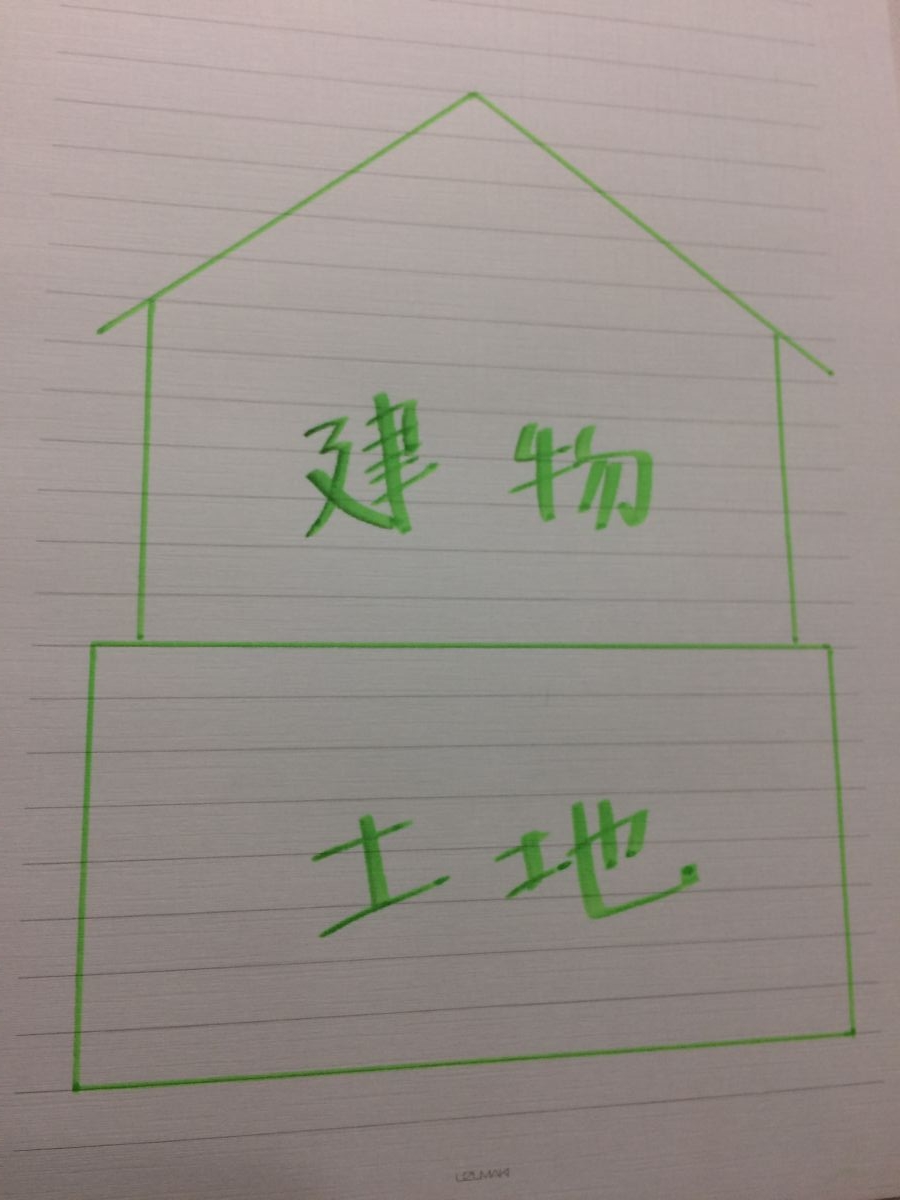 建物
土地
UZUMAKI